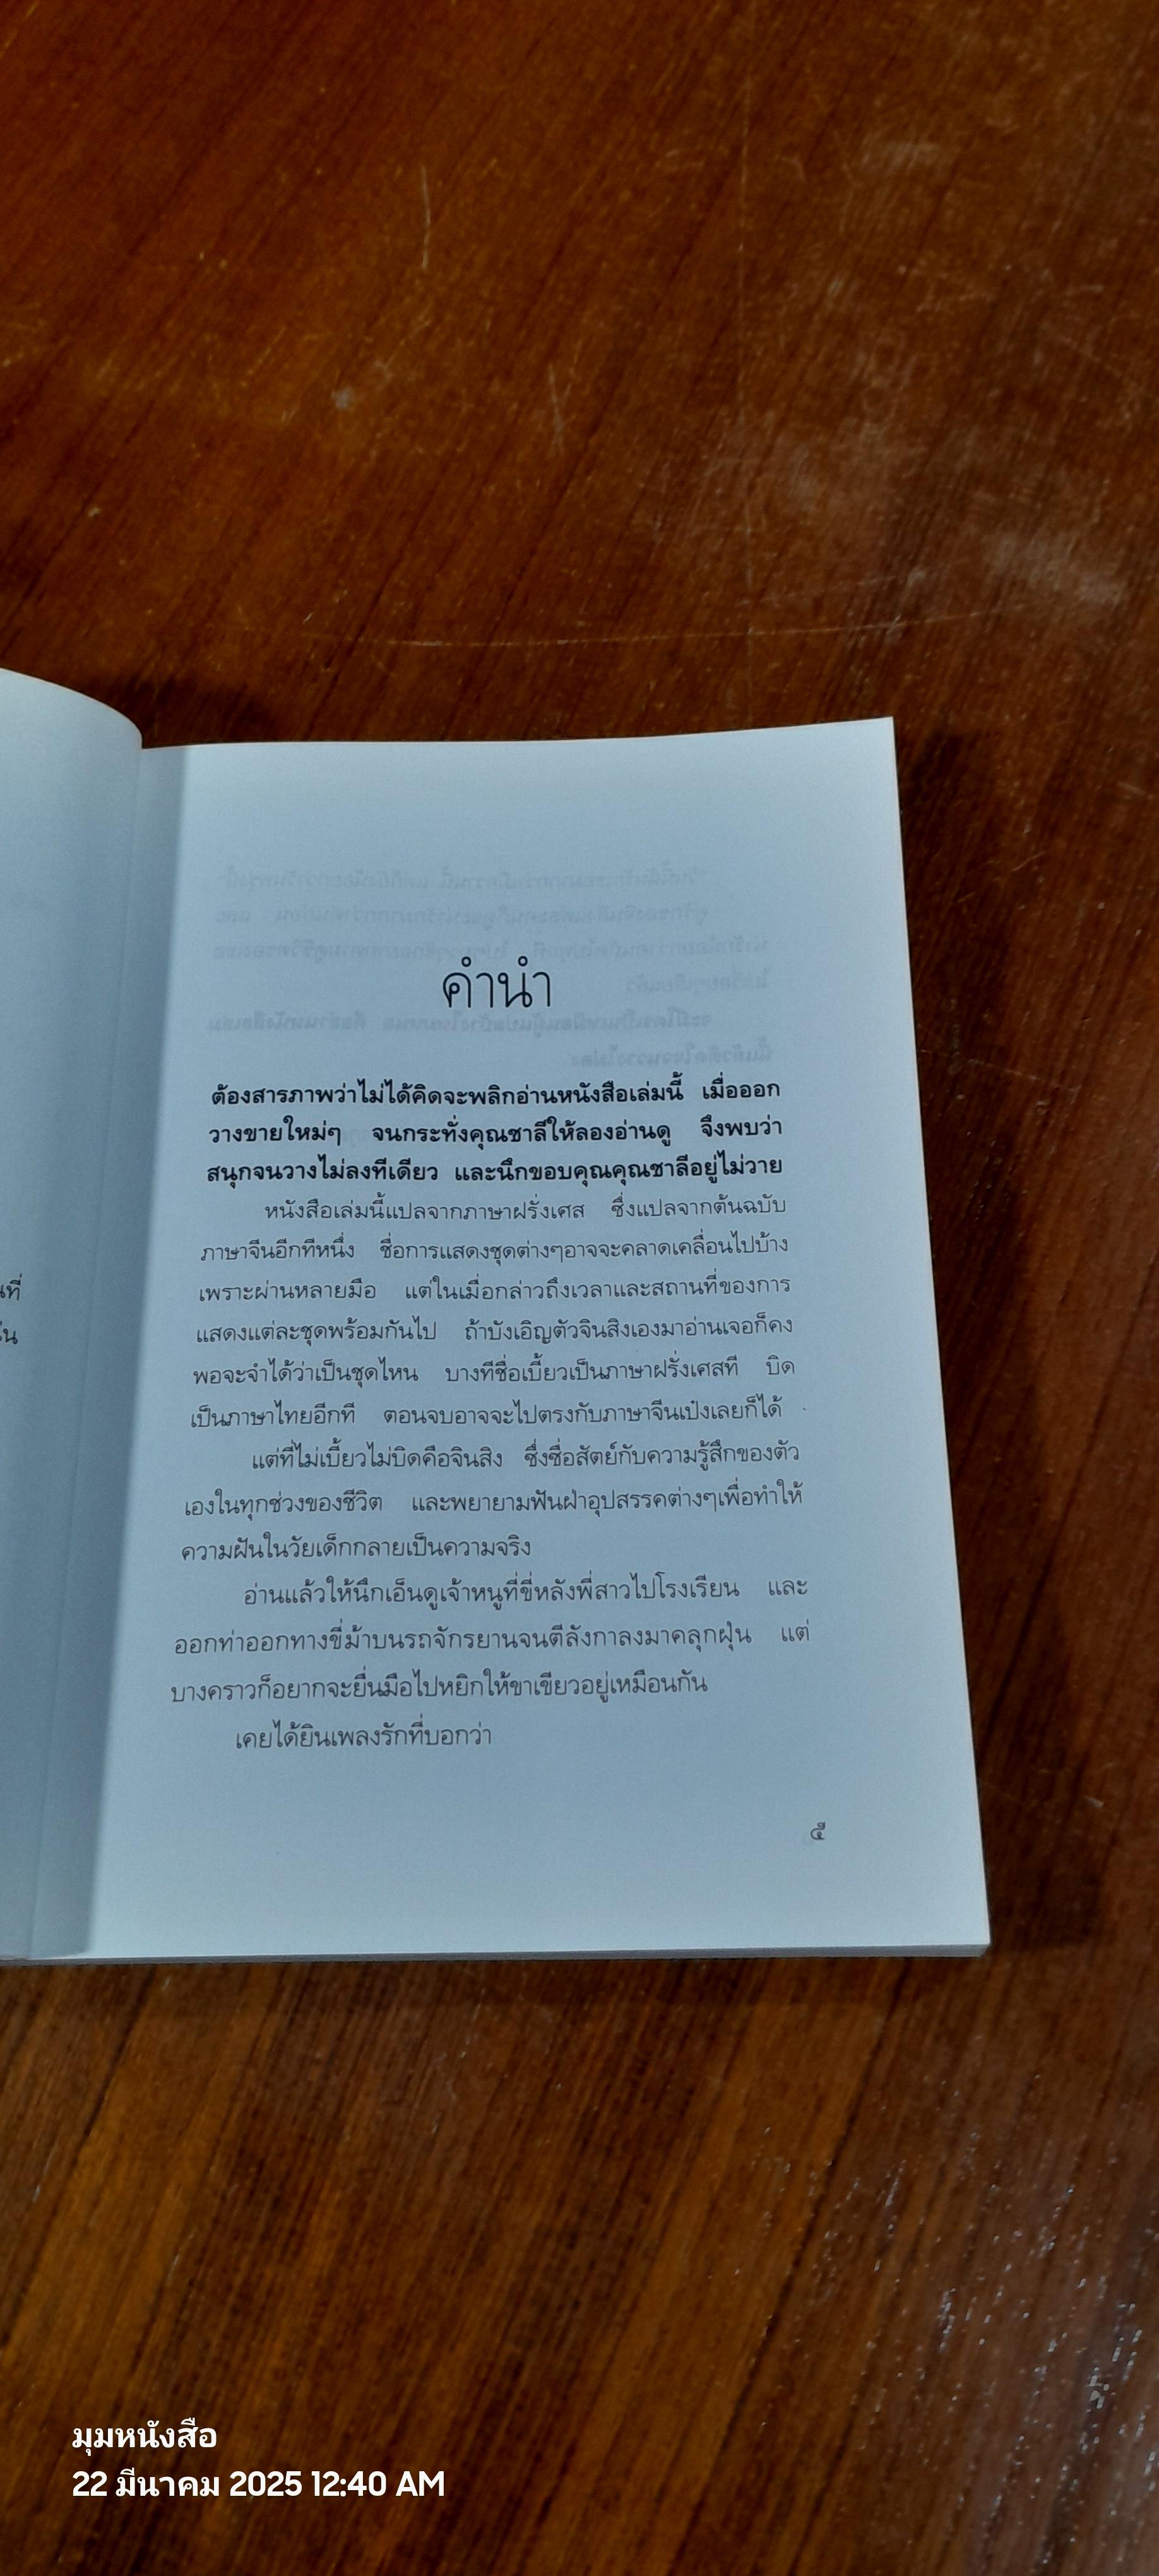 คำนำ
ต้องสารภาพว่าไม่ได้คิดจะพลิกอ่านหนังสือเล่มนี้ เมื่อออก
วางขายใหม่ๆ จนกระทั่งคุณชาลีให้ลองอ่านดู จึงพบว่า
สนุกจนวางไม่ลงทีเดียว และนึกขอบคุณคุณชาลีอยู่ไม่วาย
หนังสือเล่มนี้แปลจากภาษาฝรั่งเศส ซึ่งแปลจากต้นฉบับ
ภาษาจีนอีกทีหนึ่ง ชื่อการแสดงชุดต่างๆอาจจะคลาดเคลื่อนไปบ้าง
เพราะผ่านหลายมือ แต่ในเมื่อกล่าวถึงเวลาและสถานที่ของการ
แสดงแต่ละชุดพร้อมกันไป ถ้าบังเอิญตัวจินสิงเองมาอ่านเจอก็คง
พอจะจำได้ว่าเป็นชุดไหน บางทีชื่อเบี้ยวเป็นภาษาฝรั่งเศสที บิด
เป็นภาษาไทยอีกที ตอนจบอาจจะไปตรงกับภาษาจีนเป๋งเลยก็ได้
แต่ที่ไม่เบี้ยวไม่บิดคือจินสิง ซึ่งซื่อสัตย์กับความรู้สึกของตัว
เองในทุกช่วงของชีวิต และพยายามฟันฝ่าอุปสรรคต่างๆเพื่อทำให้
ความฝันในวัยเด็กกลายเป็นความจริง
อ่านแล้วให้นึกเอ็นดูเจ้าหนูที่ขี่หลังพี่สาวไปโรงเรียน และ
ออกท่าออกทางขี่ม้าบนรถจักรยานจนตีลังกาลงมาคลุกฝุ่น แต่
บางคราวก็อยากจะยื่นมือไปหยิกให้ขาเขียวอยู่เหมือนกัน
เคยได้ยินเพลงรักที่บอกว่า
๕
มุมหนังสือ
22 มีนาคม 2025 12:40 AM